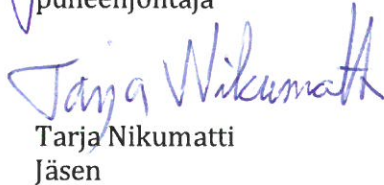 puheenjohtaja
Tarja Nikumatti
Tarja Nikumatti
Jäsen